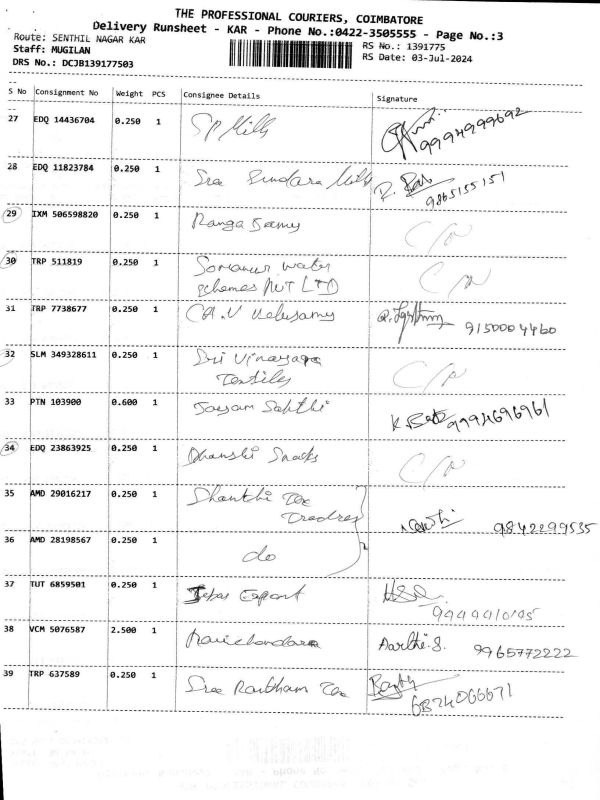 THE PROFESSIONAL COURIERS, COIMBATORE
Delivery Runsheet - KAR - Phone No.:0422-3505555 - Page No.:3
Route: SENTHIL NAGAR KAR
Staff: MUGILAN
DRS No.: DCJB139177503
RS No.: 1391775
RS Date: 03-Jul-2024
S No Consignment No Weight PCS Consignee Details Signature
27 EDQ 14436704 0.250 1 SP Mills 9994999692
28 EDQ 11823784 0.250 1 Sree Sundara Mills 9865155151
29 IXM 506598820 0.250 1 Ranga Samy C/N
30 TRP 511819 0.250 1 water C/N
schemes PVT LTD
31 TRP 7738677 0.250 1 Velusamy 9150004460
32 SLM 349328611 0.250 1 Sri Vinayaga C/N
Textiles
33 PTN 103900 0.600 1 Jayam Sakthi 9994696961
34 EDQ 23863925 0.250 1 Snacks C/N
35 AMD 29016217 0.250 1 Shanthi Tex
Traders 9842299535
36 AMD 28198567 0.250 1 do
37 TUT 6859501 0.250 1 Export
38 VCM 5076587 2.500 1 Aarthi.S. 9965772222
39 TRP 637589 0.250 1 Sree Tex